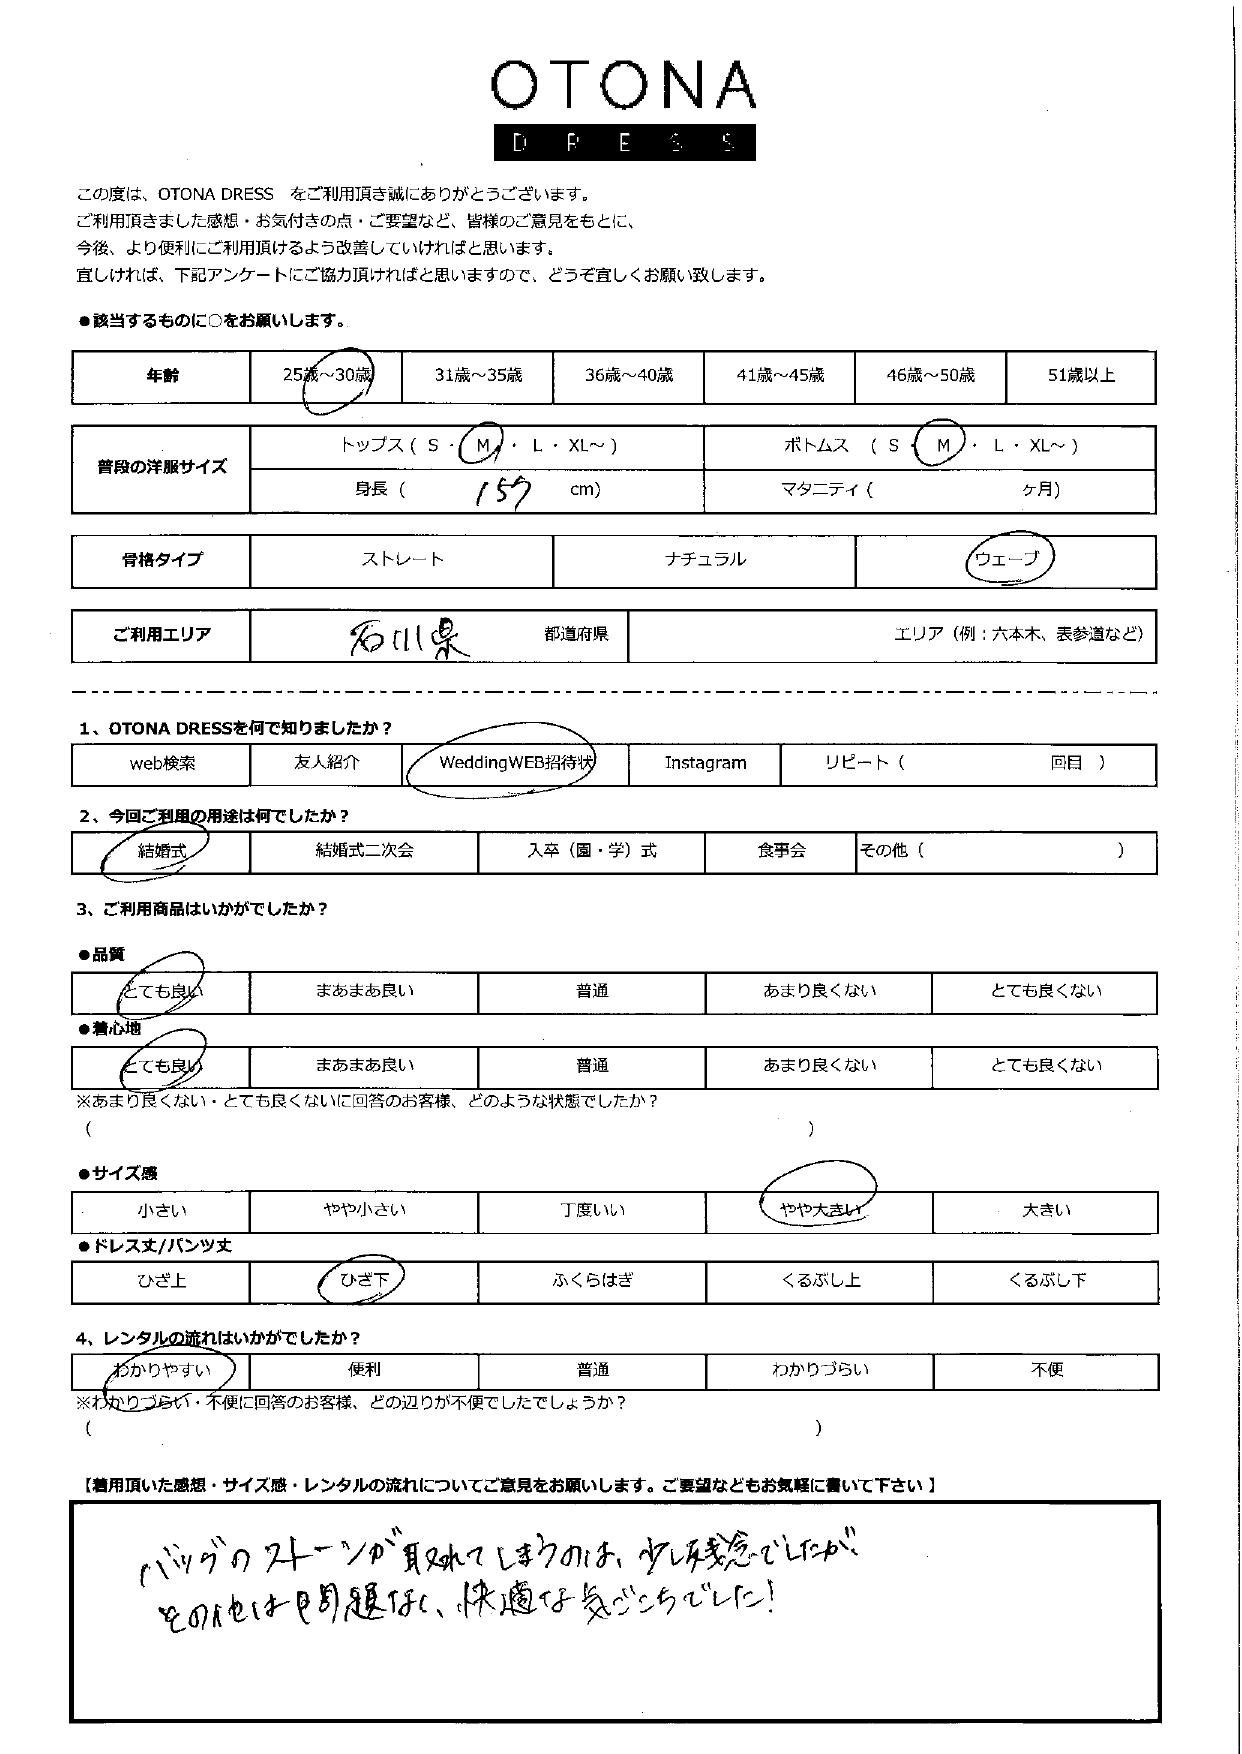 OTONA
DRESS
この度は、OTONA DRESS　をご利用頂き誠にありがとうございます。
ご利用頂きました感想・お気付きの点・ご要望など、皆様のご意見をもとに、
今後、より便利にご利用頂けるよう改善していければと思います。
宜しければ、下記アンケートにご協力頂ければと思いますので、どうぞ宜しくお願い致します。
●該当するものに○をお願いします。
年齢 25歳～30歳 31歳～35歳 36歳～40歳 41歳～45歳 46歳～50歳 51歳以上
普段の洋服サイズ トップス ( S ・ M ・ L ・ XL～ ) ボトムス ( S ・ M ・ L ・ XL～ )
身長 ( 157 cm) マタニティ ( ケ月)
骨格タイプ ストレート ナチュラル ウェーブ
ご利用エリア 石川県 都道府県 エリア（例：六本木、表参道など）
1、OTONA DRESSを何で知りましたか？
web検索 友人紹介 WeddingWEB招待状 Instagram リピート ( 回目 )
2、今回ご利用の用途は何でしたか？
結婚式 結婚式二次会 入卒（園・学）式 食事会 その他 ( )
3、ご利用商品はいかがでしたか？
●品質
とても良い まあまあ良い 普通 あまり良くない とても良くない
●着心地
とても良い まあまあ良い 普通 あまり良くない とても良くない
※あまり良くない・とても良くないに回答のお客様、どのような状態でしたか？
( )
●サイズ感
小さい やや小さい 丁度いい やや大きい 大きい
●ドレス丈/パンツ丈
ひざ上 ひざ下 ふくらはぎ くるぶし上 くるぶし下
4、レンタルの流れはいかがでしたか？
わかりやすい 便利 普通 わかりづらい 不便
※わかりづらい・不便に回答のお客様、どの辺りが不便でしたでしょうか？
( )
【着用頂いた感想・サイズ感・レンタルの流れについてご意見をお願いします。ご要望などもお気軽に書いて下さい】
バッグのストーンが取れてしまうのは、少し残念でしたが、
その他は問題なく、快適な気ごこちでした！